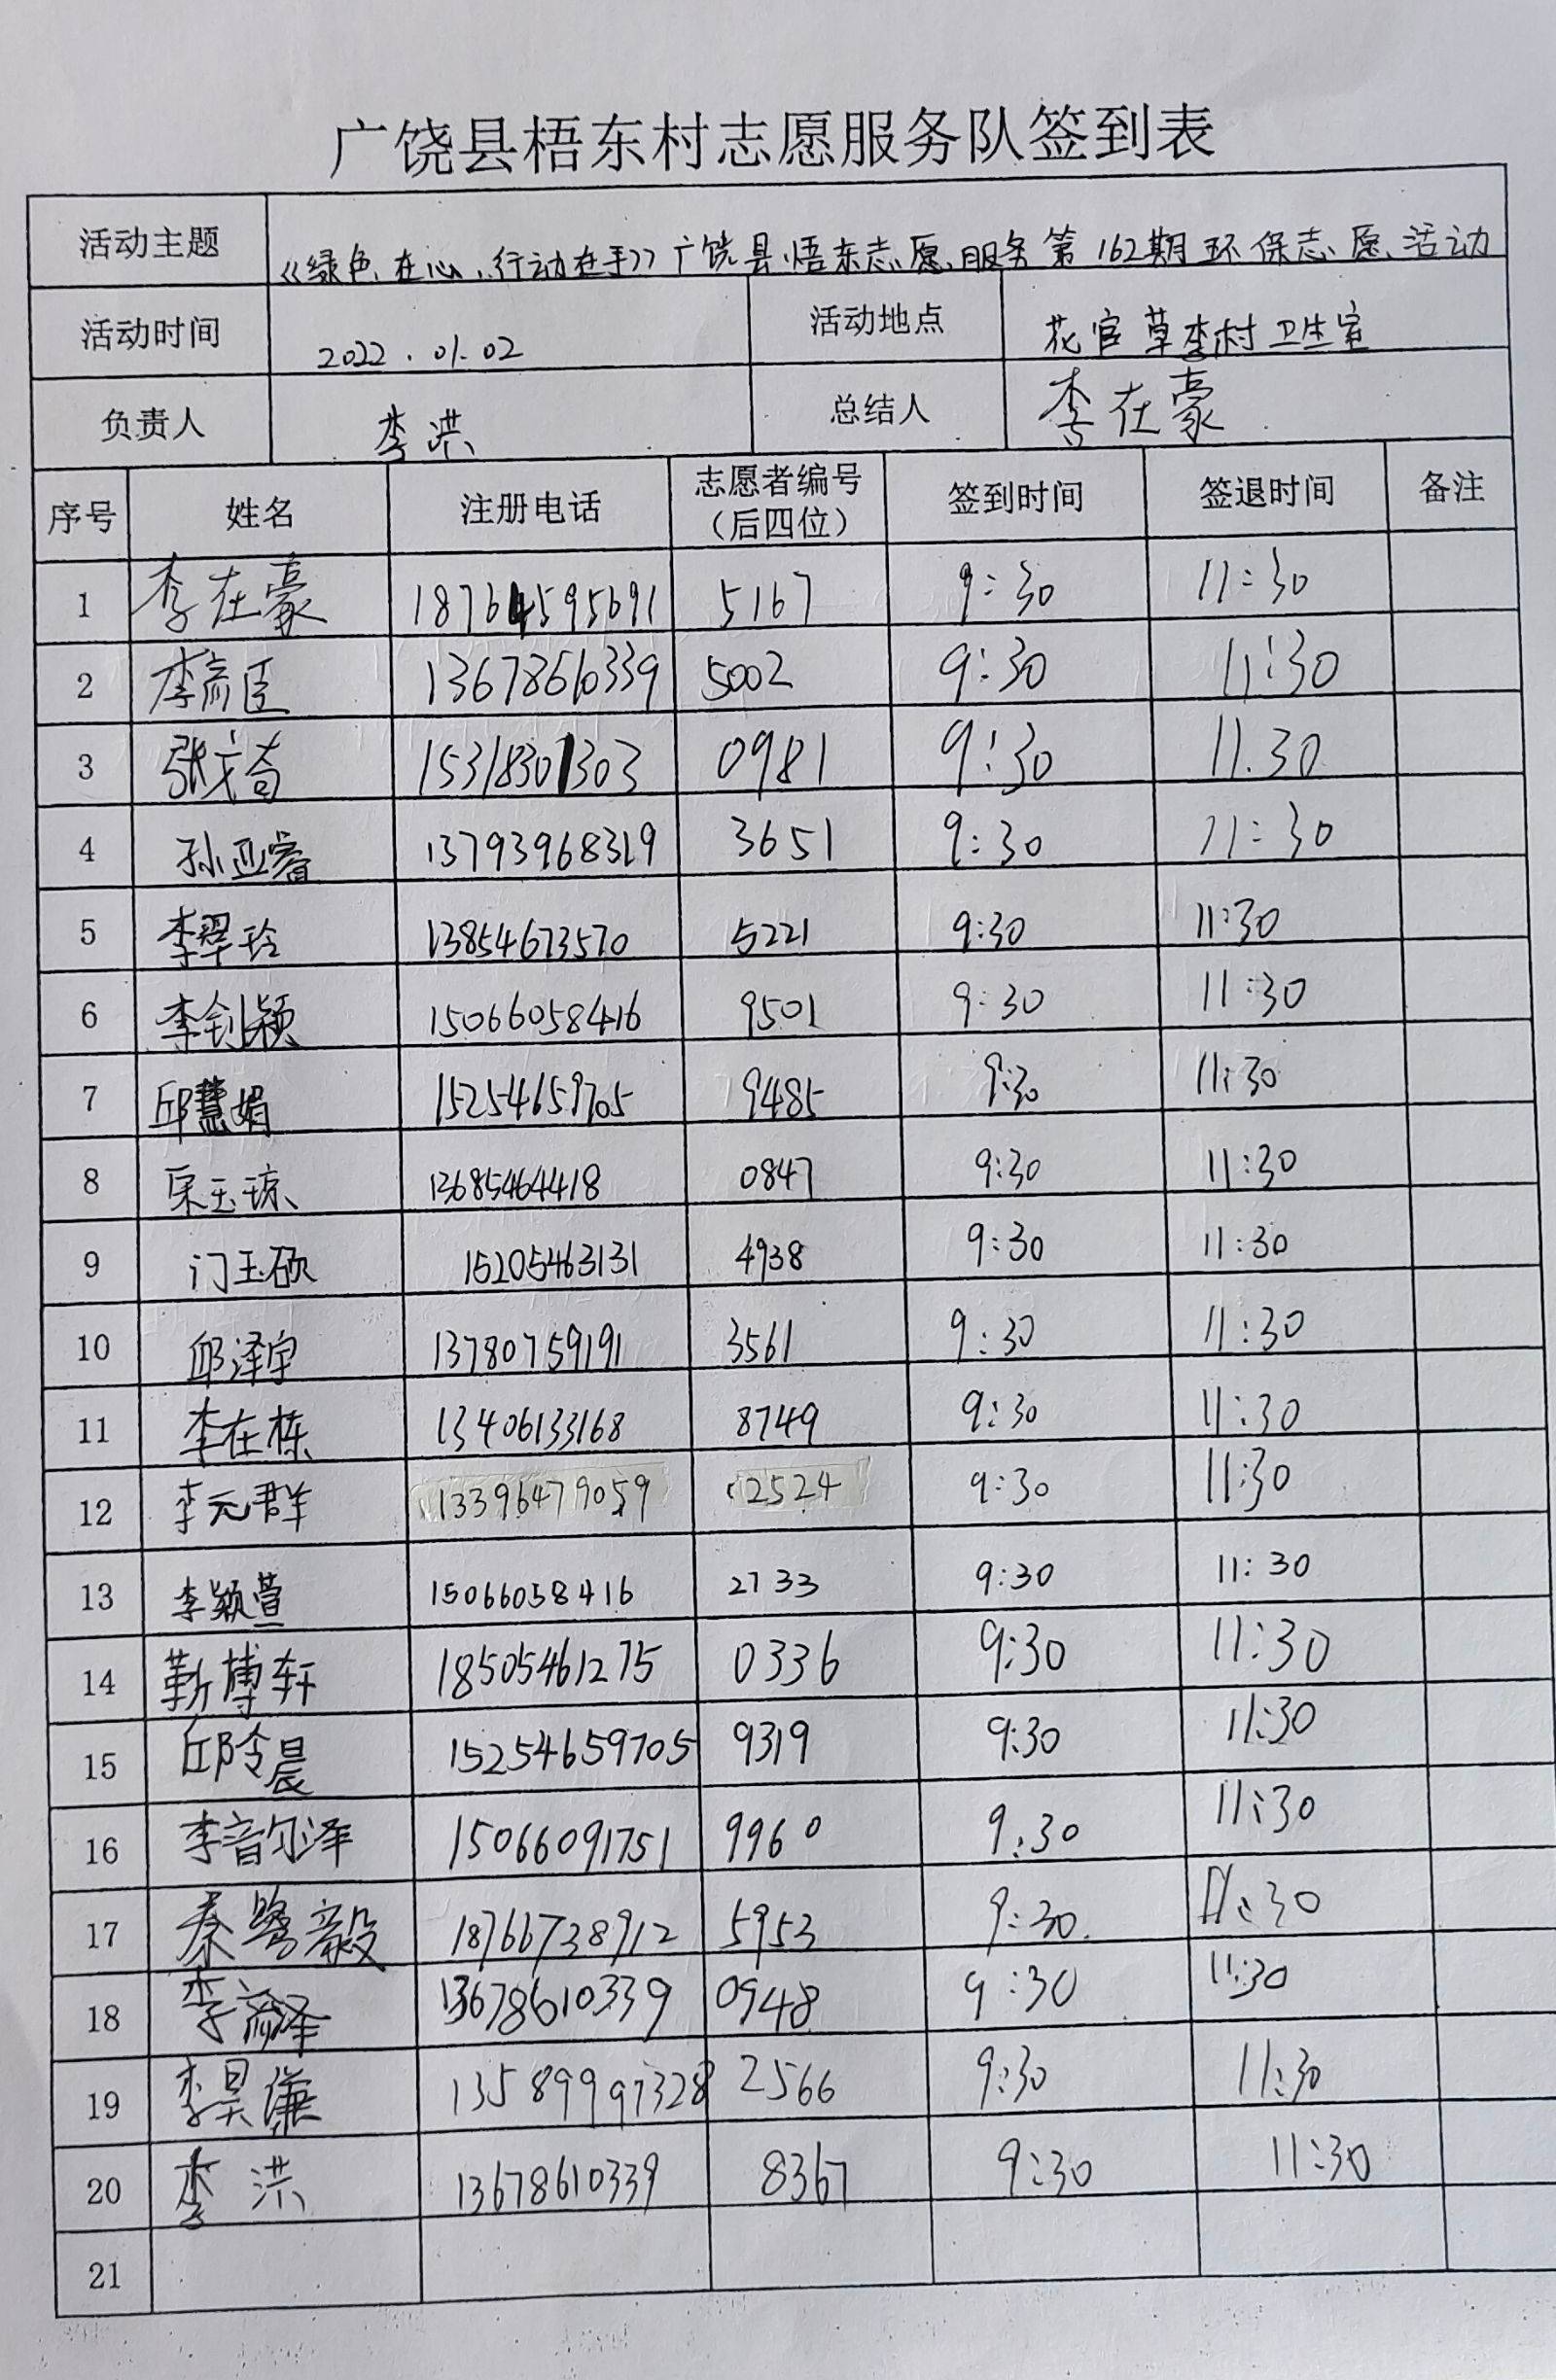 广饶县梧东村志愿服务队签到表
活动主题 《绿色在心,行动在手》广饶县悟东志愿服务第162期环保志愿活动
活动时间 2022.01.02 活动地点 花官草李村卫生室
负责人 李洪 总结人 李在豪
序号 姓名 注册电话 志愿者编号（后四位） 签到时间 签退时间 备注
1 李在豪 18764595691 5167 9:30 11:30
2 李彦臣 13678610339 5002 9:30 11:30
3 15318301303 0981 9:30 11.30
4 孙亚睿 13793968319 3651 9:30 11:30
5 李翠玲 13854673570 5221 9:30 11:30
6 李钊颖 15066058416 9501 9:30 11:30
7 邱慧娟 15254659705 9485 9:30 11:30
8 宋玉琼 13685464418 0847 9:30 11:30
9 门玉硕 15205463131 4938 9:30 11:30
10 邱泽宇 13780759191 3561 9:30 11:30
11 李在栋 13406133168 8749 9:30 11:30
12 李元群 13396479059 2524 9:30 11:30
13 李颖萱 15066058416 2733 9:30 11:30
14 靳博轩 18505461275 0336 9:30 11:30
15 邱令晨 15254659705 9319 9:30 11:30
16 李音尔泽 15066091751 9960 9:30 11:30
17 秦鹭毅 18766738912 5953 9:30 11:30
18 李彦泽 13678610339 0948 9:30 11:30
19 李昊谦 13589997328 2566 9:30 11:30
20 李洪 13678610339 8367 9:30 11:30
21